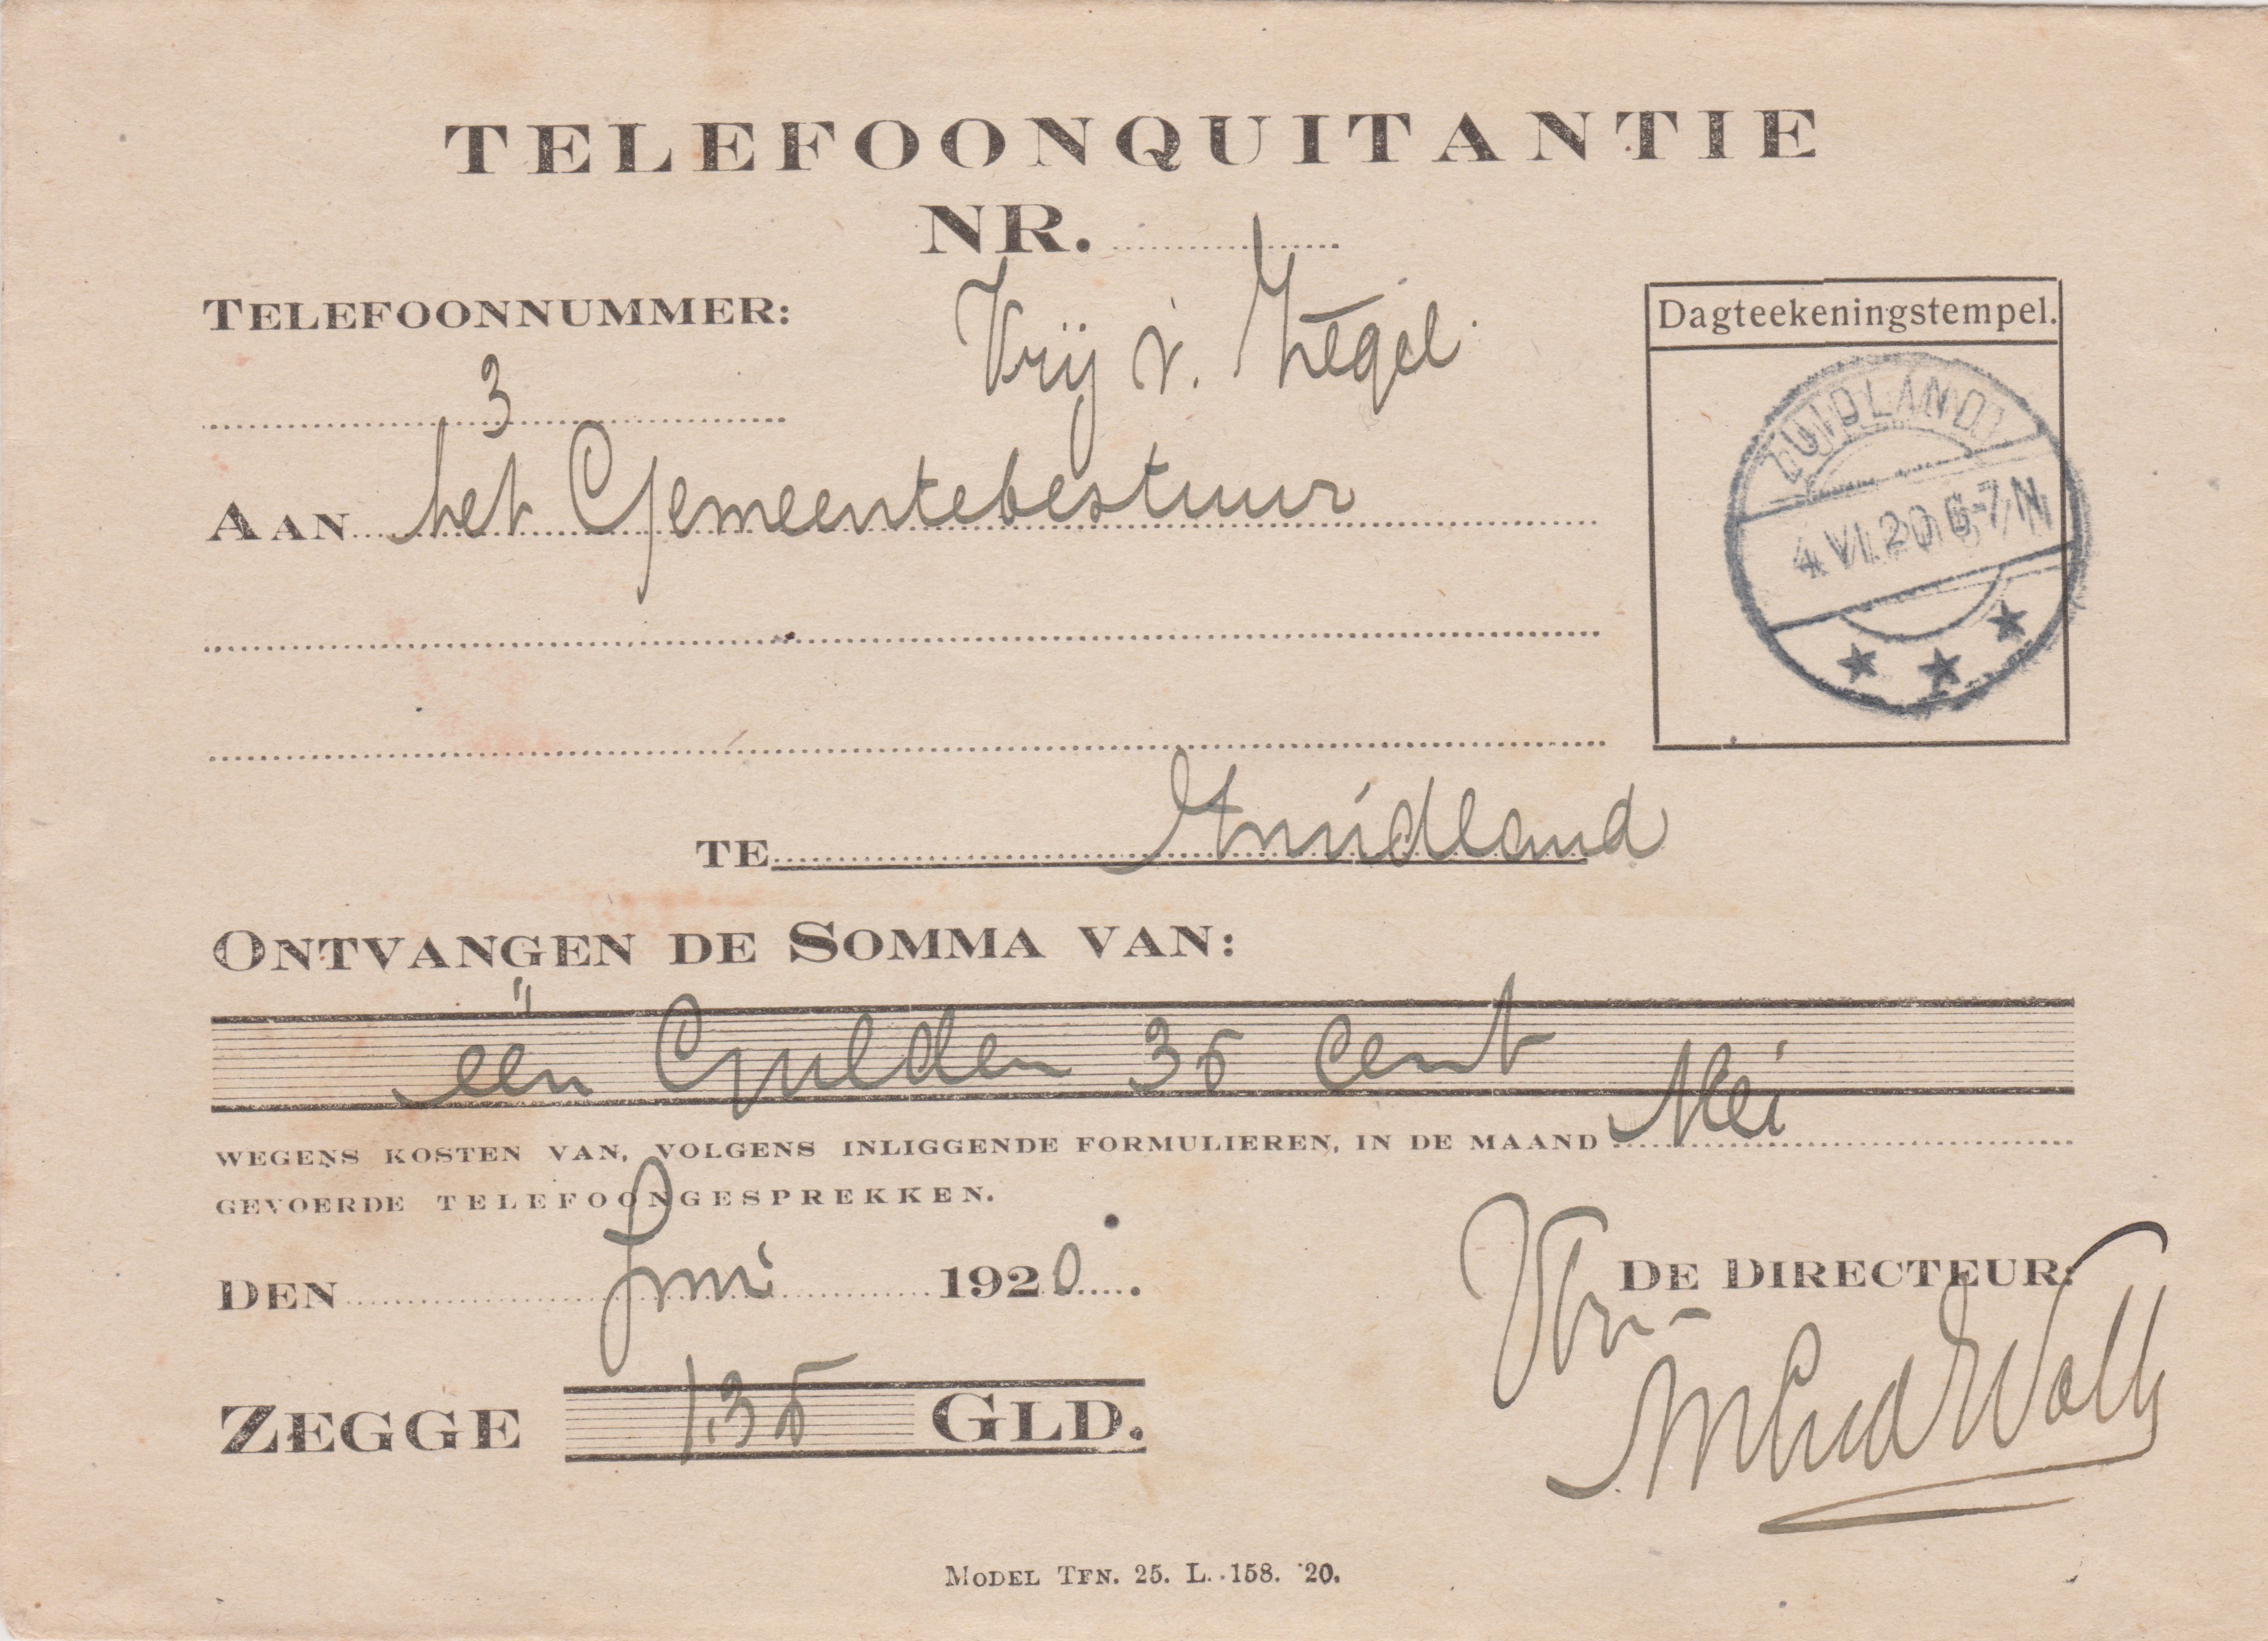 TELEFOONQUITANTIE
NR.
TELEFOONNUMMER:
Vrij v. Zegel.
3
Dagteekeningstempel.
ZUIDLAND
4 VI. 20 6-7 N
AAN het Gemeentebestuur
TE Zuidland
ONTVANGEN DE SOMMA VAN:
één Gulden 35 cent
WEGENS KOSTEN VAN, VOLGENS INLIGGENDE FORMULIEREN, IN DE MAAND Mei
GEVOERDE TELEFOONGESPREKKEN.
DEN Juni 1920.
DE DIRECTEUR:
ZEGGE 1.35 GLD.
MODEL TFN. 25. L. 158. '20.